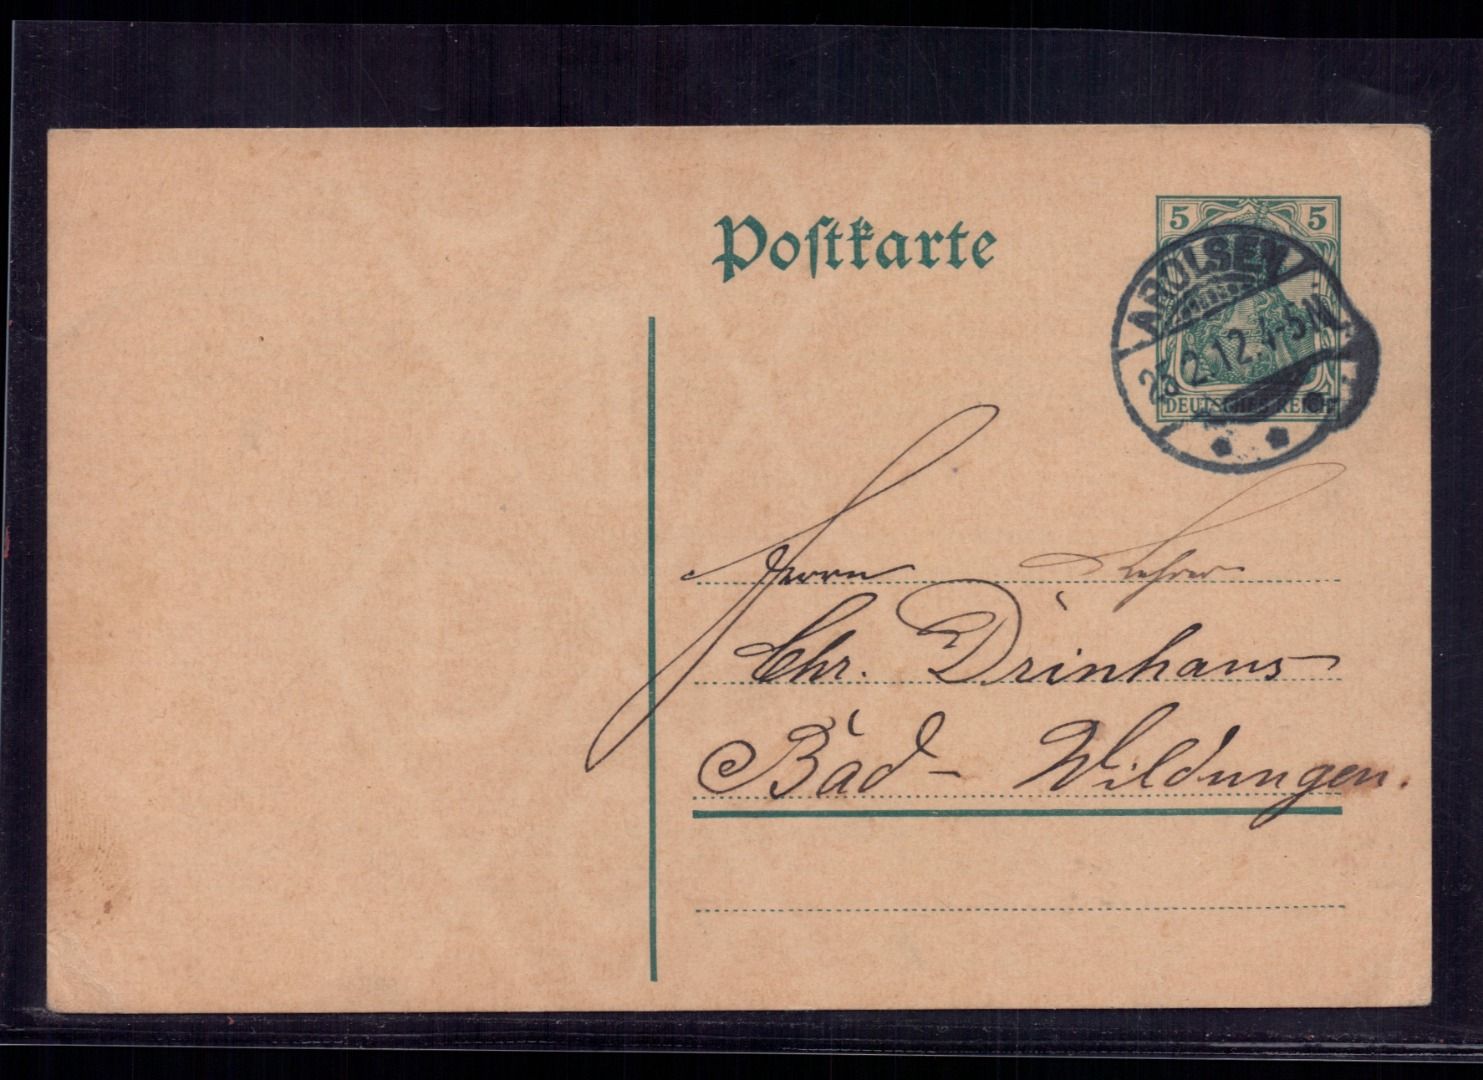 Postkarte
5 5
AROLSEN
25.2.12.4-5N
DEUTSCHES REICH
Herrn Lehrer
Chr. Drinhaus
Bad-Wildungen.